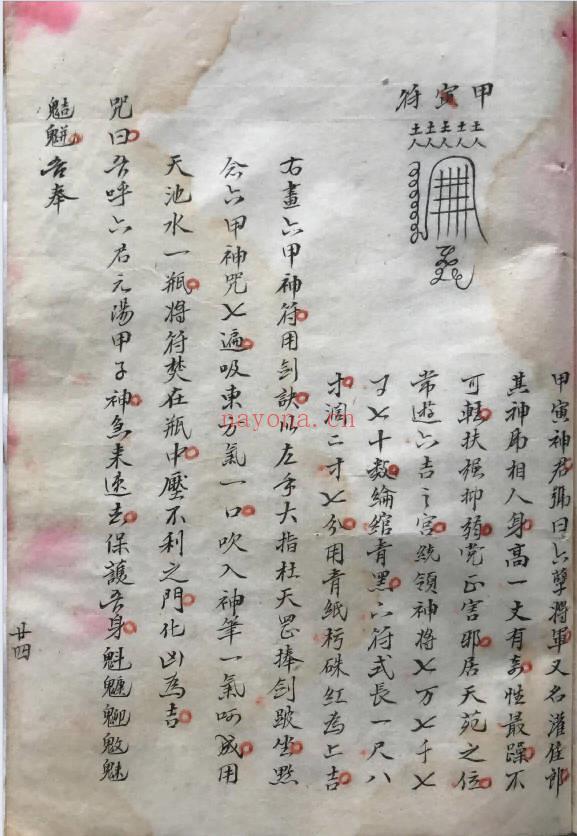 甲寅符
甲寅神君號曰六孽將軍又名灌佳郎
其神相人身高一丈有性最躁不
可輕扶強抑弱党正害邪居天苑之位
常遊六吉之宮統領神將㐅万㐅千㐅
㐅十數綸綰青黑六符式長一尺八
寸濶二寸㐅分用青紙硃紅為上吉
右畫六甲神符用剑訣以左手大指柱天罡捧剑坐點
念六甲神咒㐅遍吸東方氣一口吹入神筆一氣呵成用
天池水一瓶將符焚在瓶中壓不利之門化凶為吉
咒曰吾呼六君元湯甲子神急来速去保護吾身魁
吾奉
廿四
nayona.cn